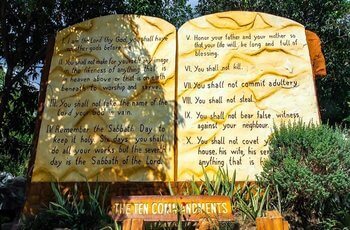 I am the Lord thy God, you shall have
other gods before
II. You shall not make for yourself any image
in the likeness of anything that is
in heaven above or that is on earth
beneath to worship and serve
III. You shall not take the name of the
Lord your God in vain.
IV. Remember the Sabbath Day to
keep it holy. Six days you shall
do all your works but the seventh
day is the Sabbath of the Lord.
V. Honor your father and your mother so
that your life will be long and full of
blessing.
VI. You shall not kill.
VII. You shall not commit adultery.
VIII. You shall not steal.
IX. You shall not bear false witness
against your neighbour.
X. You shall not covet
house, his wife, his
anything that is
THE TEN COMMANDMENTS